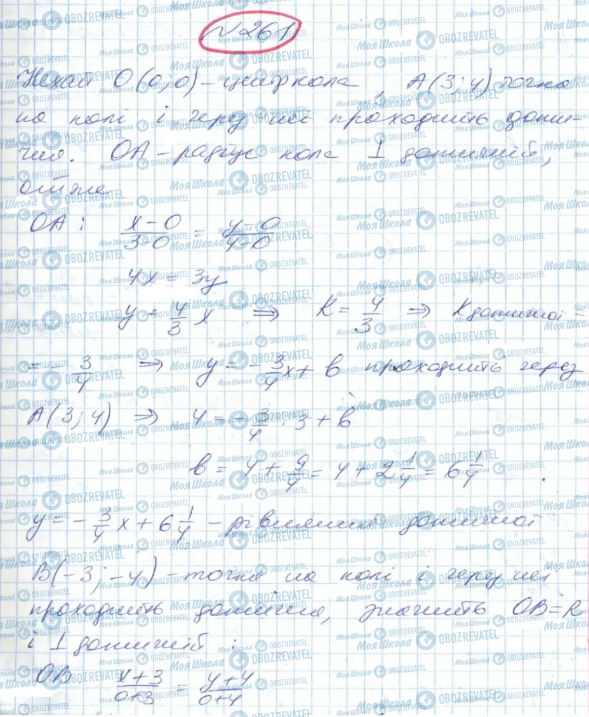 №261
Нехай O(0;0) - центр кола, A(3;4) точка
на колі і через неї проходить доти-
чна. OA - радіус кола ⊥ дотичній,
отже
OA: (x-0)/(3-0) = (y-0)/(4-0)
4x = 3y
y = 4/3 x ⇒ k = 4/3 ⇒ k дотичної =
= -3/4 ⇒ y = -3/4 x + b проходить через
A(3;4) ⇒ 4 = -3/4 · 3 + b
b = 4 + 9/4 = 4 + 2 1/4 = 6 1/4
y = -3/4 x + 6 1/4 - рівняння дотичної
B(-3;-4) - точка на колі і через неї
проходить дотична, значить OB=R
і ⊥ дотичній :
OB (x+3)/(0+3) = (y+4)/(0+4)